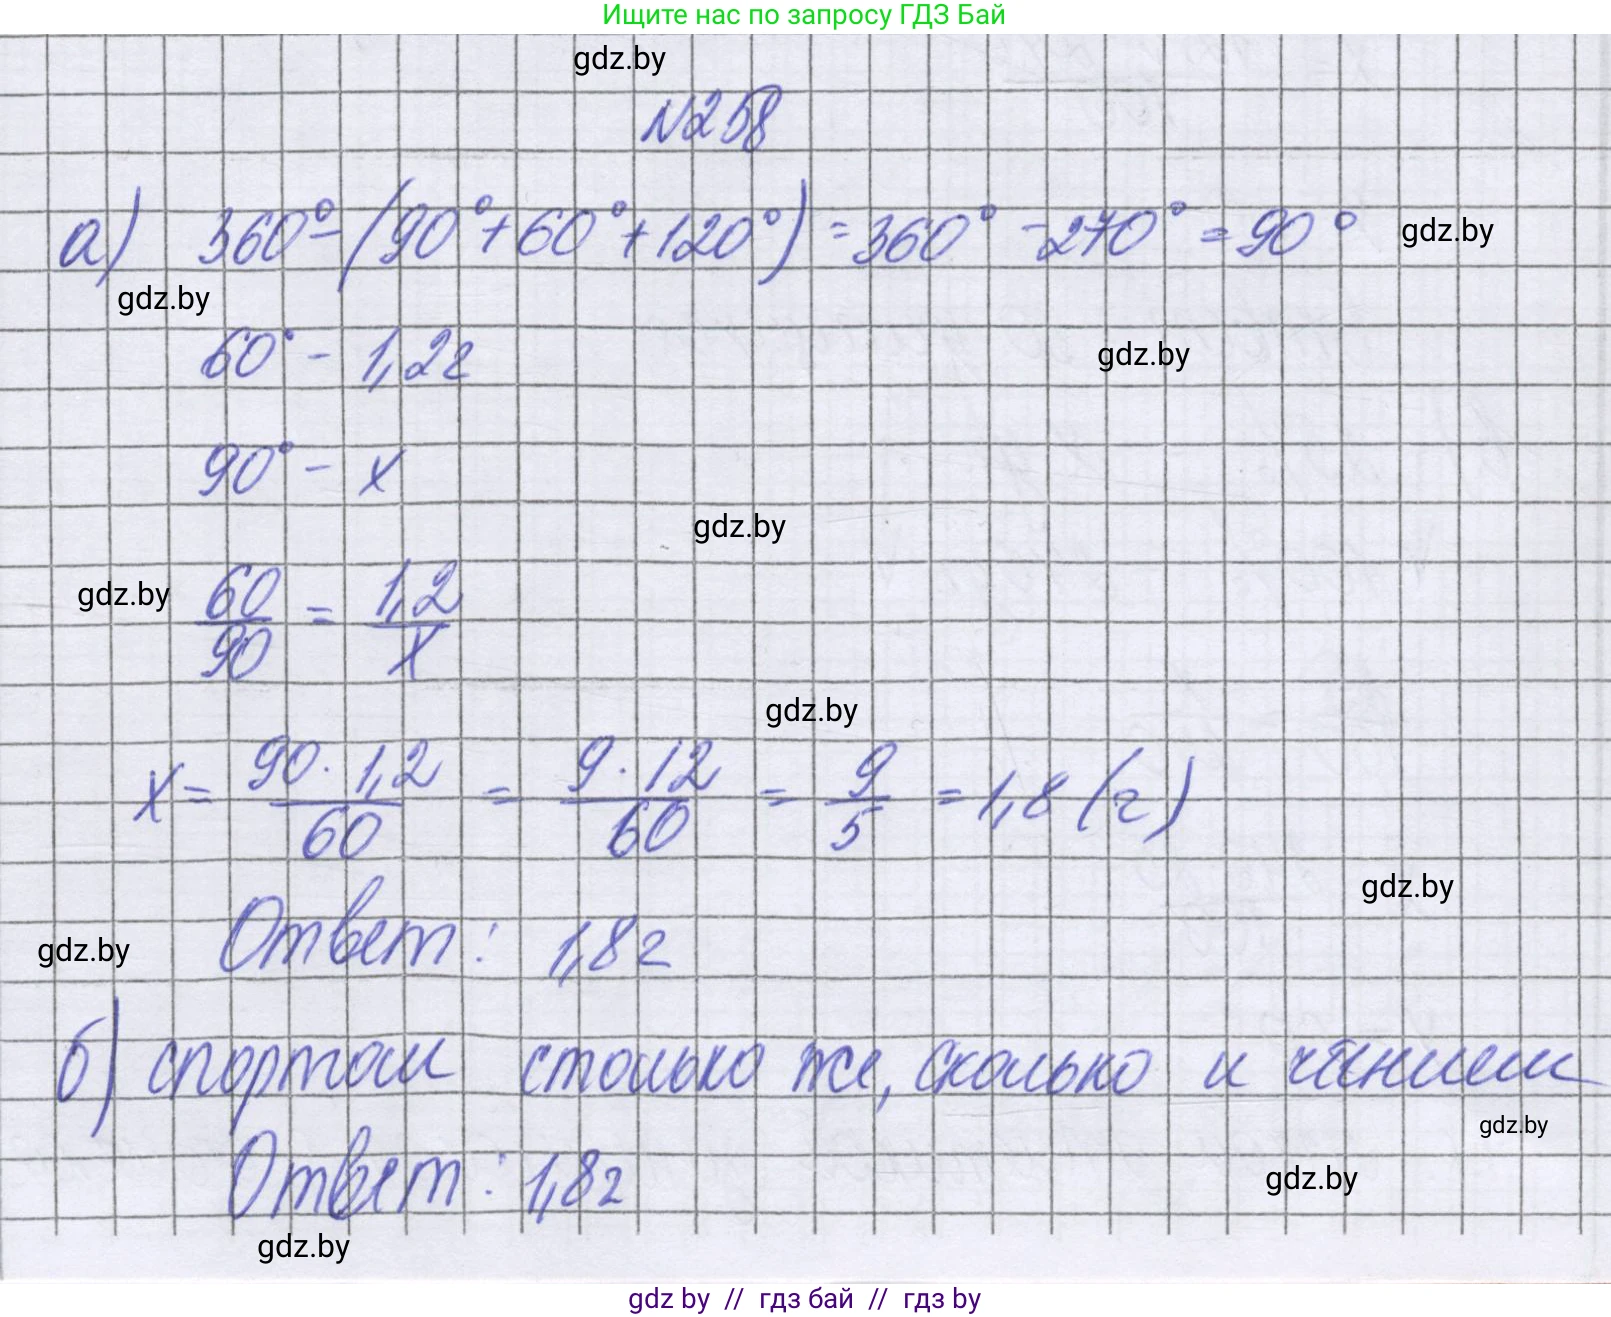 Ищите нас по запросу ГДЗ Бай
gdz.by
N258
а) 360° - (90° + 60° + 120°) = 360° - 270° = 90°
gdz.by
gdz.by
60° - 1,2г
gdz.by
90° - х
gdz.by
gdz.by
60/90 = 1,2/х
gdz.by
х = 90 · 1,2/60 = 9 · 12/60 = 9/5 = 1,8 (г)
gdz.by
Ответ: 1,8г
gdz.by
б) спортом столько же, сколько и чтением
gdz.by
Ответ: 1,8г
gdz.by
gdz.by
gdz by // гдз бай // гдз by